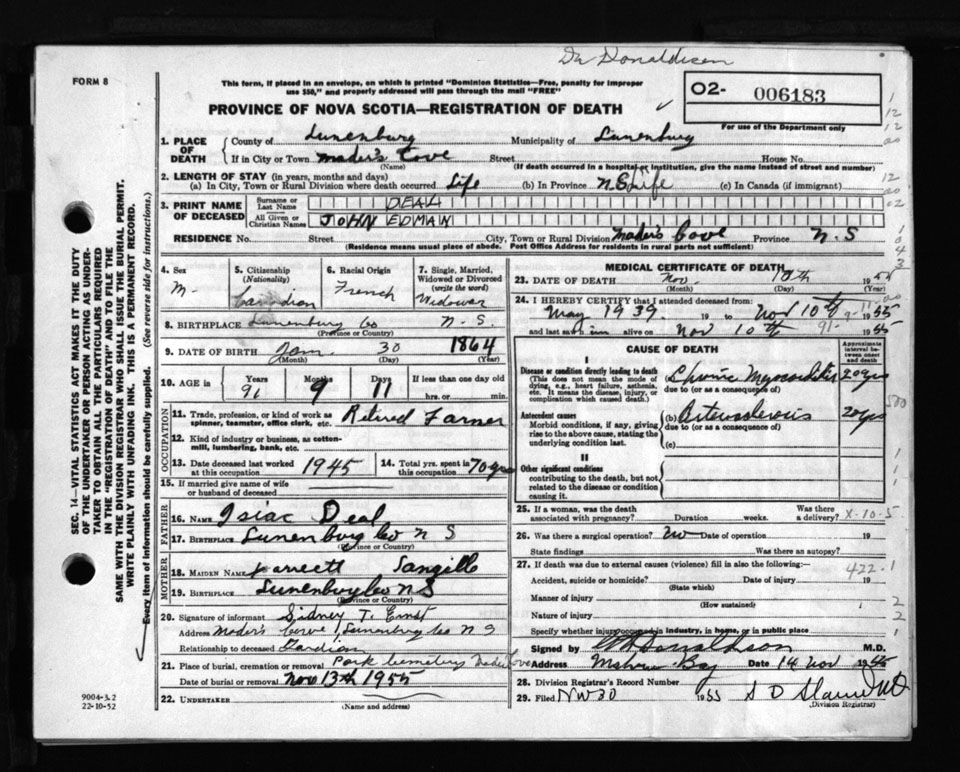 Dr Donaldson
FORM 8
This form, if placed in an envelope, on which is printed "Dominion Statistics—Free, penalty for improper
use $50," and properly addressed will pass through the mail "FREE"
PROVINCE OF NOVA SCOTIA—REGISTRATION OF DEATH
O2- 006183
For use of the Department only
1. PLACE OF DEATH
County of Lunenburg Municipality of Lunenburg
If in City or Town Mader's Cove Street House No.
(Name) (If death occurred in a hospital or institution, give the name instead of street and number)
2. LENGTH OF STAY (in years, months and days)
(a) In City, Town or Rural Division where death occurred Life (b) In Province N S Life (c) In Canada (if immigrant)
3. PRINT NAME OF DECEASED
Surname or Last Name DEAL
All Given or Christian Names JOHN EDMAN
RESIDENCE No. Street City, Town or Rural Division Mader's Cove Province N. S
(Residence means usual place of abode. Post Office Address for residents in rural parts not sufficient)
4. Sex
M-
5. Citizenship
(Nationality)
Canadian
6. Racial Origin
French
7. Single, Married, Widowed or Divorced
(write the word)
Widower
8. BIRTHPLACE Lunenburg Co N-S.
(Province or Country)
9. DATE OF BIRTH Jan. 30 1864
(Month) (Day) (Year)
10. AGE in Years Months Days If less than one day old
91 9 11 hrs. or min.
OCCUPATION
11. Trade, profession, or kind of work as
spinner, teamster, office clerk, etc. Retired Farmer
12. Kind of industry or business, as cotton-
mill, lumbering, bank, etc.
13. Date deceased last worked
at this occupation 1945
14. Total yrs. spent in
this occupation 70 yrs
15. If married give name of wife
or husband of deceased
FATHER
16. NAME Isiac Deal
17. BIRTHPLACE Lunenburg Co N S
(Province or Country)
MOTHER
18. MAIDEN NAME
19. BIRTHPLACE Lunenburg Co N S
(Province or Country)
20. Signature of informant Sidney T. Ernst
Address Mader's Cove, Lunenburg Co N S
Relationship to deceased
21. Place of burial, cremation or removal Park Cemetery Mader's Cove
Date of burial or removal Nov 13th 1955
22. UNDERTAKER
(Name and address)
MEDICAL CERTIFICATE OF DEATH
23. DATE OF DEATH Nov. 10th 1955
(Month) (Day) (Year)
24. I HEREBY CERTIFY that I attended deceased from:
May 1939 19 to Nov 10th 1955
and last saw him alive on Nov 10th 1955
91-
CAUSE OF DEATH
Approximate interval between onset and death
I
Disease or condition directly leading to death
(This does not mean the mode of dying, e.g., heart failure, asthenia, etc. It means the disease, injury, or complication which caused death.)
(a) Chronic Myocarditis 20 yrs
due to (or as a consequence of)
Antecedent causes
Morbid conditions, if any, giving rise to the above cause, stating the underlying condition last.
(b) 20 yrs
due to (or as a consequence of)
(c)
II
Other significant conditions
contributing to the death, but not related to the disease or condition causing it.
25. If a woman, was the death
associated with pregnancy? Duration weeks. Was there a delivery? X-10-5
26. Was there a surgical operation? No Date of operation 19
State findings Was there an autopsy?
27. If death was due to external causes (violence) fill in also the following:- 422-1
Accident, suicide or homicide? Date of injury 19
(State which)
Manner of injury
(How sustained)
Nature of injury
Specify whether injury occurred in industry, in home, or in public place
Signed by Donaldson M.D.
Address Mahone Bay Date 14 Nov 1955
28. Division Registrar's Record Number
29. Filed Nov 30 1955
(Division Registrar)
SEC. 14—VITAL STATISTICS ACT MAKES IT THE DUTY
OF THE UNDERTAKER OR PERSON ACTING AS UNDER-
TAKER TO OBTAIN ALL THE PARTICULARS REQUIRED
IN THE "REGISTRATION OF DEATH" AND TO FILE THE
SAME WITH THE DIVISION REGISTRAR WHO SHALL ISSUE THE BURIAL PERMIT.
WRITE PLAINLY WITH UNFADING INK. THIS IS A PERMANENT RECORD.
Every item of information should be carefully supplied. (See reverse side for instructions.)
9004-3.2
22-10-52